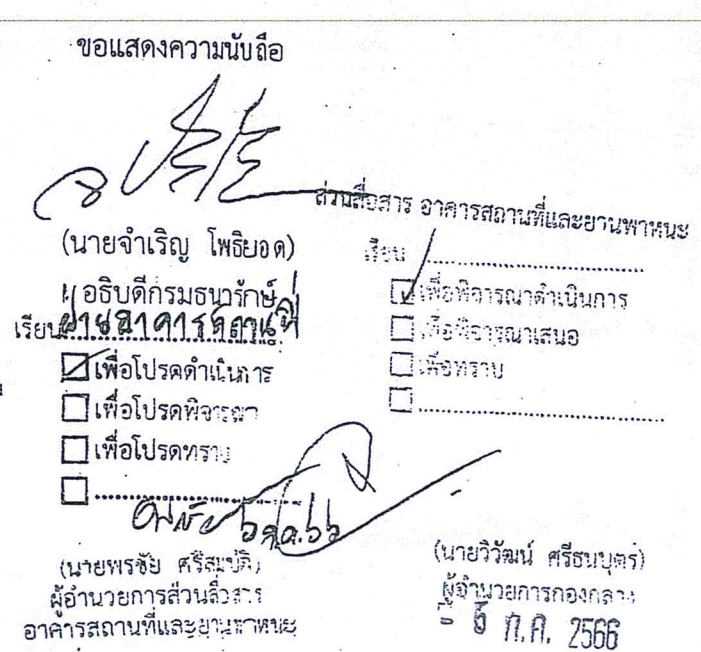 ขอแสดงความนับถือ
(นายจำเริญ โพธิยอด)
อธิบดีกรมธนารักษ์
เรียน ฝ่ายอาคารสถานที่
เพื่อโปรดดำเนินการ
เพื่อโปรดพิจารณา
เพื่อโปรดทราบ
๖ ก.ค. ๖๖
(นายพรชัย ศรีสมบัติ)
ผู้อำนวยการส่วนสื่อสาร
อาคารสถานที่และยานพาหนะ
ส่วนสื่อสาร อาคารสถานที่และยานพาหนะ
เรียน
เพื่อพิจารณาดำเนินการ
เพื่อพิจารณาเสนอ
เพื่อทราบ
(นายวิวัฒน์ ศรีธนบุตร)
ผู้อำนวยการกองกลาง
ก.ค. 2566